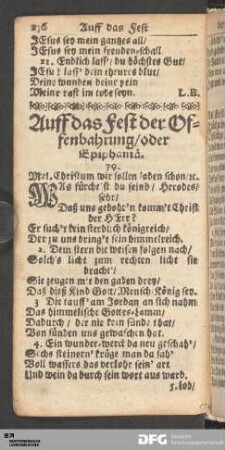 236 Auff das Fest
JEsus sey mein gantzes all/
JEsus sey mein freuden-schall.
11. Endlich lass/ du höchstes Gut/
JEsu! lass' dein theures blut/
Deine wunden deine pein
Meine rast im tode seyn. L.B.
Auff das Fest der Of-
fenbahrung/oder
Epiphaniä.
79.
Mel. Christum wir sollen loben schon/ec.
WAs fürcht'st du feind/ Herodes/
sehr/
Daß uns gebohr'n komm't Christ
der HErr?
Er such't kein sterblich königreich/
Der zu uns bring't sein himmelreich.
2. Dem stern die weisen folgen nach/
Solch's licht zum rechten licht sie
bracht'/
Sie zeugen m't den gaben drey/
Daß dieß Kind Gott/ Mensch/ König sey.
3 Die tauff' am Jordan an sich nahm
Das himmelische Gottes-Lamm/
Dadurch/ der nie kein sünde that/
Von sünden uns gewaschen hat.
4. Ein wunder-werck da neu geschah'/
Sechs steinern' krüge man da sah'
Voll wassers das verlohr sein' art
Und wein da durch sein wort aus ward.
5. Lob/